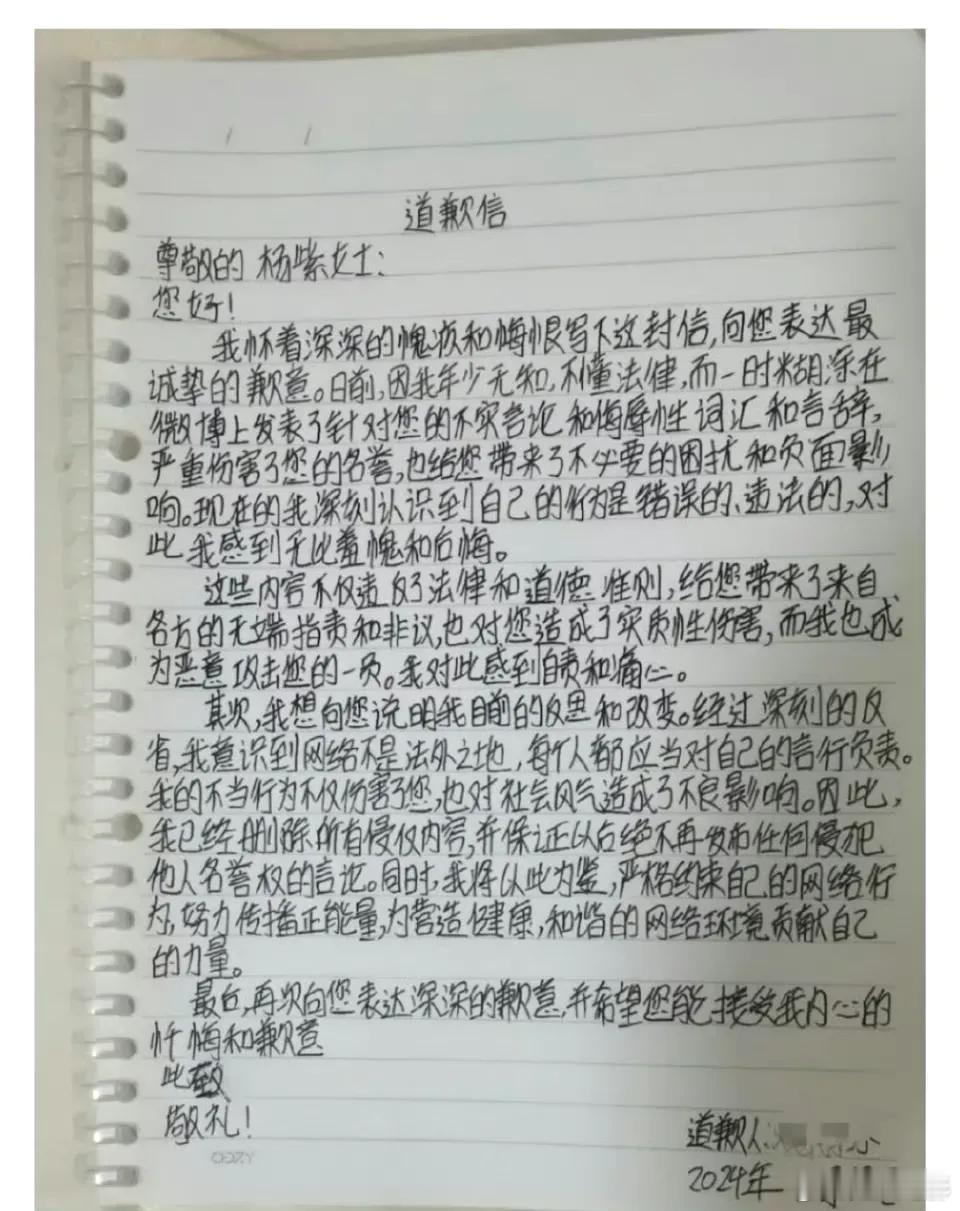 道歉信
尊敬的 杨紫女士:
您好!
我怀着深深的愧疚和悔恨写下这封信,向您表达最
诚挚的歉意。日前,因我年少无知,不懂法律,而一时糊涂在
微博上发表了针对您的不实言论和侮辱性词汇和言辞,
严重伤害了您的名誉,也给您带来了不必要的困扰和负面影
响。现在的我深刻认识到自己的行为是错误的、违法的,对
此,我感到无比羞愧和后悔。
这些内容不仅违反了法律和道德准则,给您带来了来自
各方的无端指责和非议,也对您造成了实质性伤害,而我也成
为恶意攻击您的一员。我对此感到自责和痛心。
其次,我想向您说明我目前的反思和改变。经过深刻的反
省,我意识到网络不是法外之地,每个人都应当对自己的言行负责。
我的不当行为不仅伤害了您,也对社会风气造成了不良影响。因此,
我已经删除所有侵权内容,并保证以后绝不再发布任何侵犯
他人名誉权的言论。同时,我将以此为鉴,严格约束自己的网络行
为,努力传播正能量,为营造健康,和谐的网络环境贡献自己
的力量。
最后,再次向您表达深深的歉意,并希望您能接受我内心的
忏悔和歉意
此致
敬礼!
道歉人:
2024年